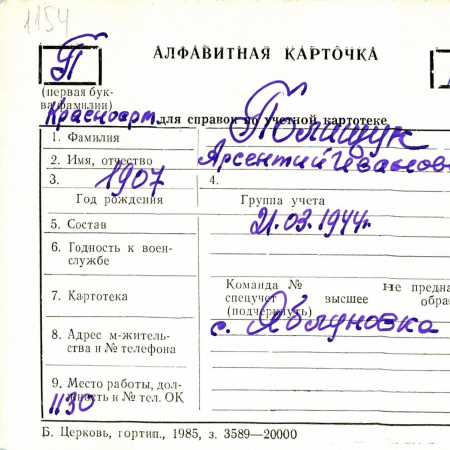 1154
П
АЛФАВИТНАЯ КАРТОЧКА
(первая бук-
ва фамилии)
Красноарм. для справок по учетной картотеке
1. Фамилия Полищук
2. Имя, отчество Арсентий Иванов
3. 1907 4.
Год рождения Группа учета
5. Состав 21.03.1944г.
6. Годность к воен-
службе
Команда № не предна
7. Картотека спецучет высшее обра
(подчеркнуть)
8. Адрес м-житель- с. Яблуновка
ства и № телефона
9. Место работы, дол-
жность и № тел. ОК
1130
Б. Церковь, гортип., 1985, з. 3589—20000